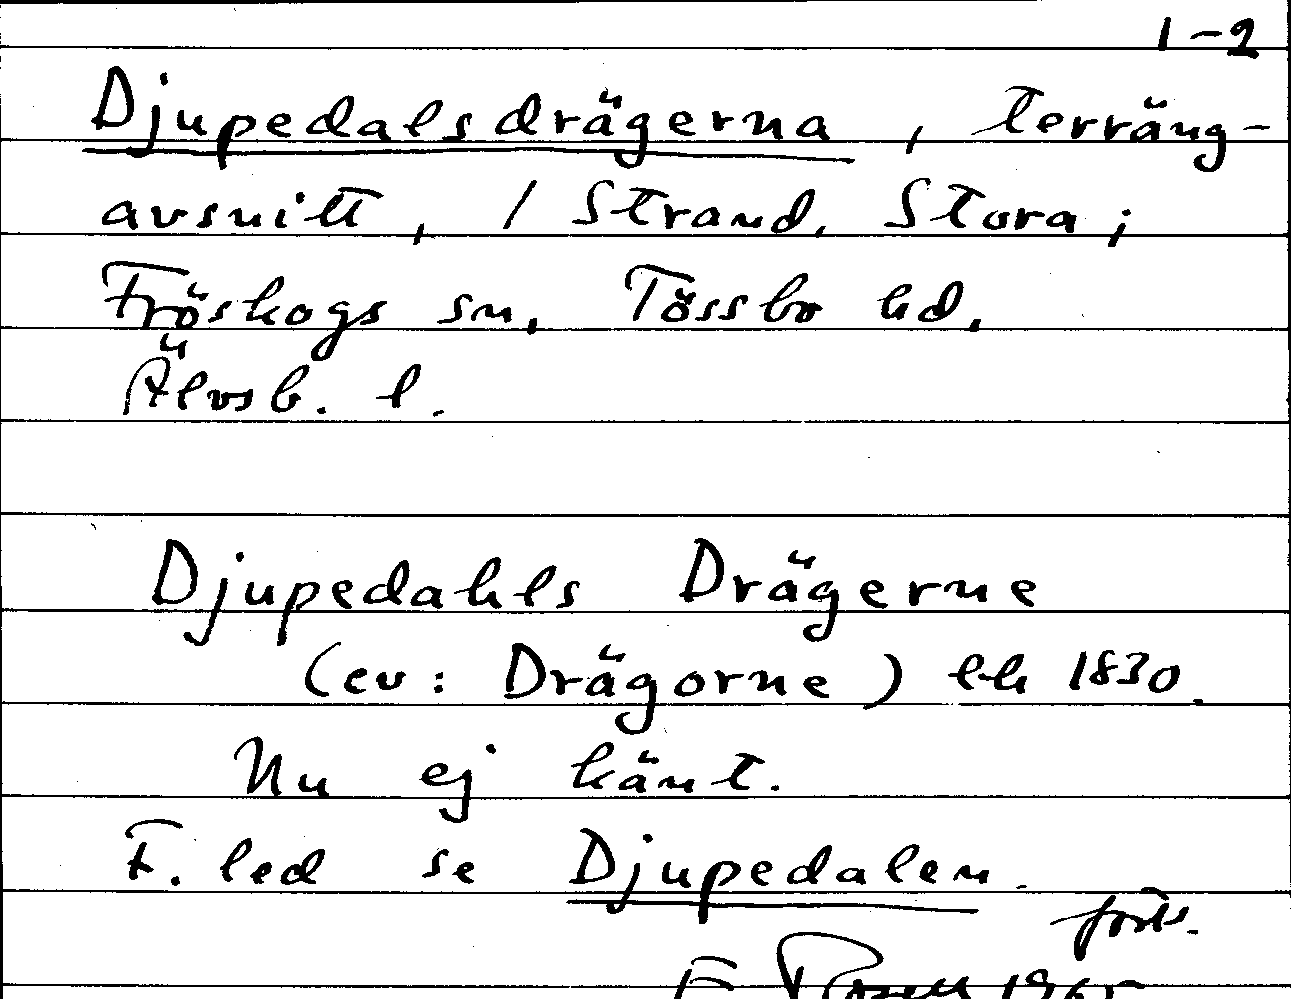 1-2
Djupedalsdrägerna, terräng-
avsnitt, / Strand, Stora;
Fröskogs sn, Tössbo hd,
Älvsb. l.
Djupedahls Drägerne
(ev: Drägorne) lh 1830.
Nu ej känt.
F. led se Djupedalen.
forts.
E